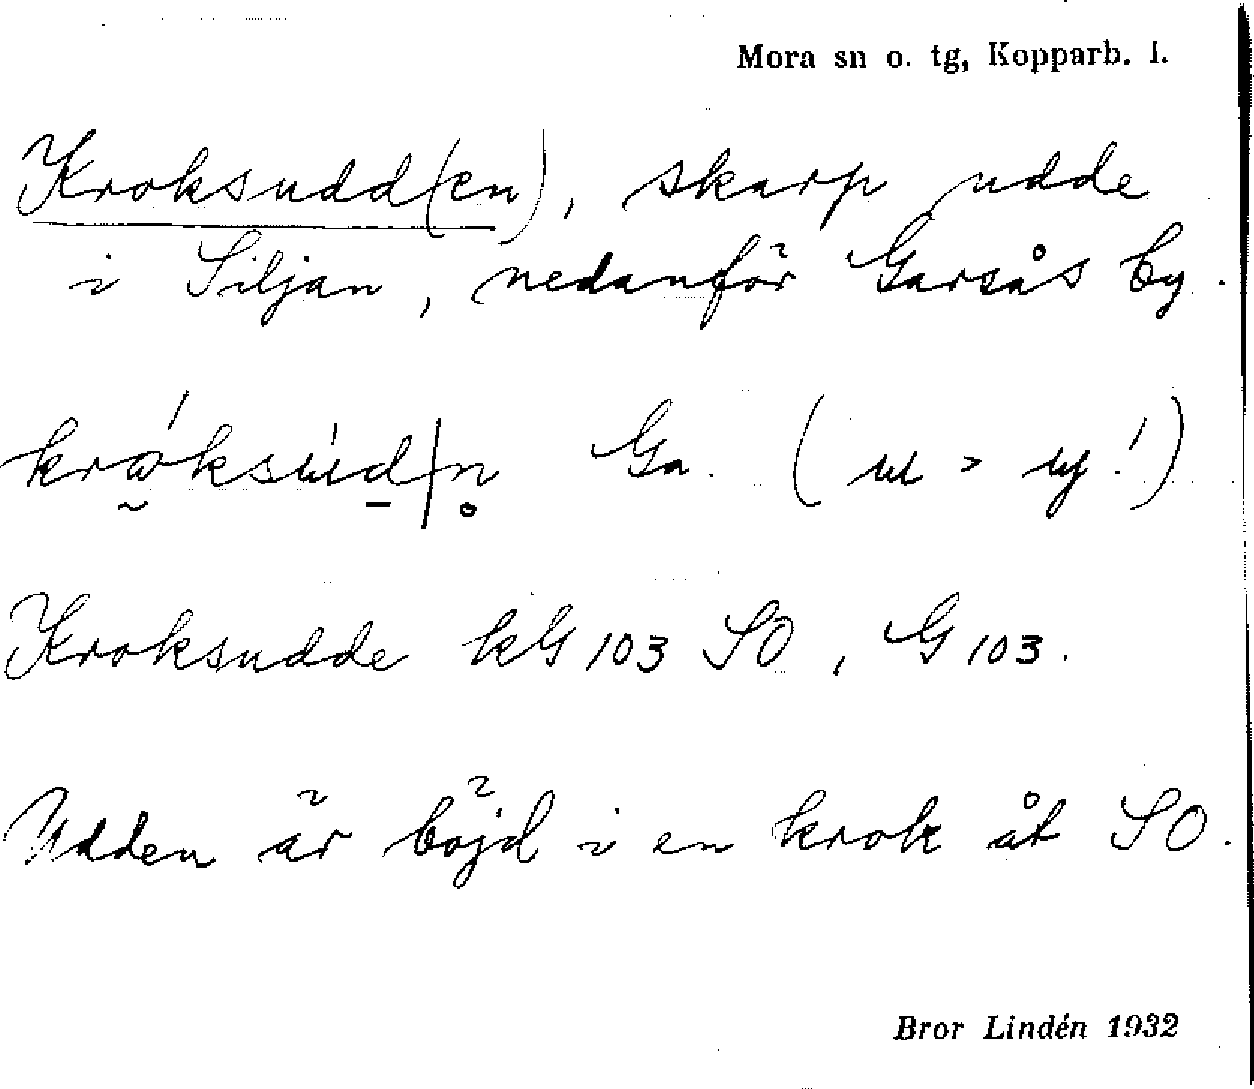 Mora sn o. tg, Kopparb. l.
Kroksudd(en), skarp udde
i Siljan, nedanför Garsås by.
Ga.
Kroksudde kG 103 SO, G 103.
Udden är böjd i en krok åt SO.
Bror Lindén 1932